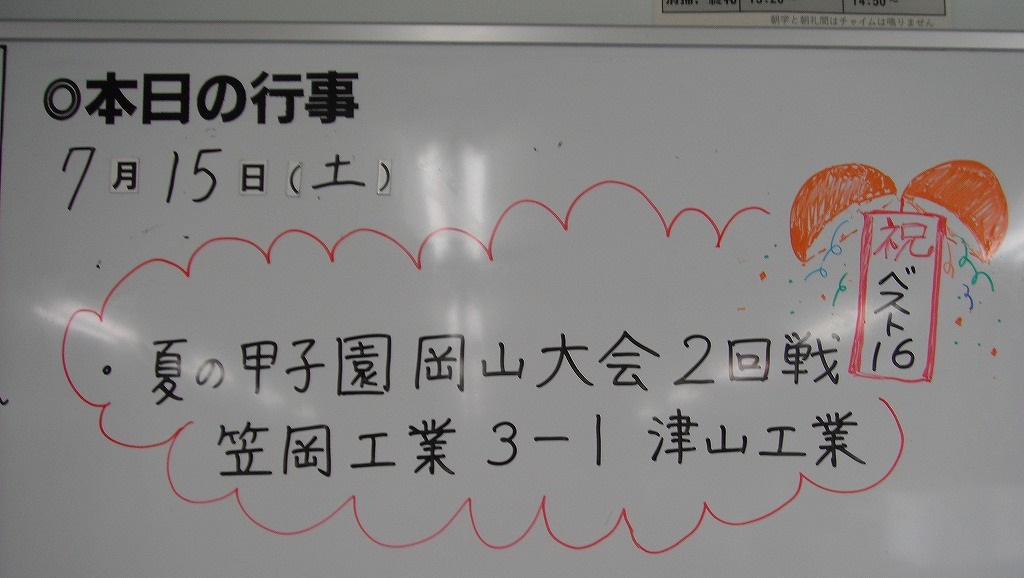 朝学と朝礼間はチャイムは鳴りません
◎本日の行事
7月15日(土)
祝
ベスト
16
・夏の甲子園岡山大会2回戦
笠岡工業3-1津山工業